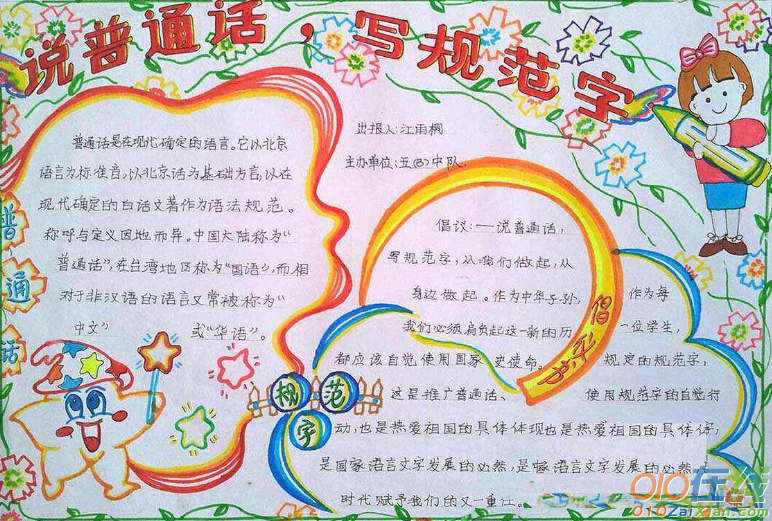 说普通话，写规范字
普通话是在现代确定的语言。它以北京
语言为标准音，以北京话为基础方言，以在
现代确定的白话文著作为语法规范。
称呼与定义因地而异。中国大陆称为“
普通话”，在台湾地区称为“国语”，而相
对于非汉语的语言又常被称为“
中文” 或“华语”。
普通话
出报人：江雨桐
主办单位：五(3)中队
倡议：——说普通话，
写规范字，从我们做起，从
身边做起。作为中华子孙，作为每
我们必须肩负起这一新的历 一位学生，
都应该自觉使用国家 史使命。 规定的规范字，
这是推广普通话、 使用规范字的自觉行
动，也是热爱祖国的具体体现也是热爱祖国的具体体，
是国家语言文字发展的必然，是 语言文字发展的必然，
时代赋予我们的又一重任。
规范字
倡
010在线
010ZaiXian.com